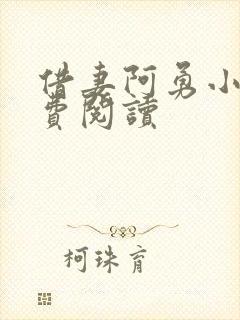 借妻阿勇小
費閱讀
柯珠育